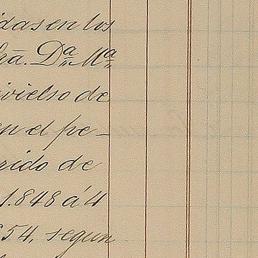 idas en los
ñra. Dª Mª
ivielso de
en el pe-
rido de
1.848 á 4
854, segun